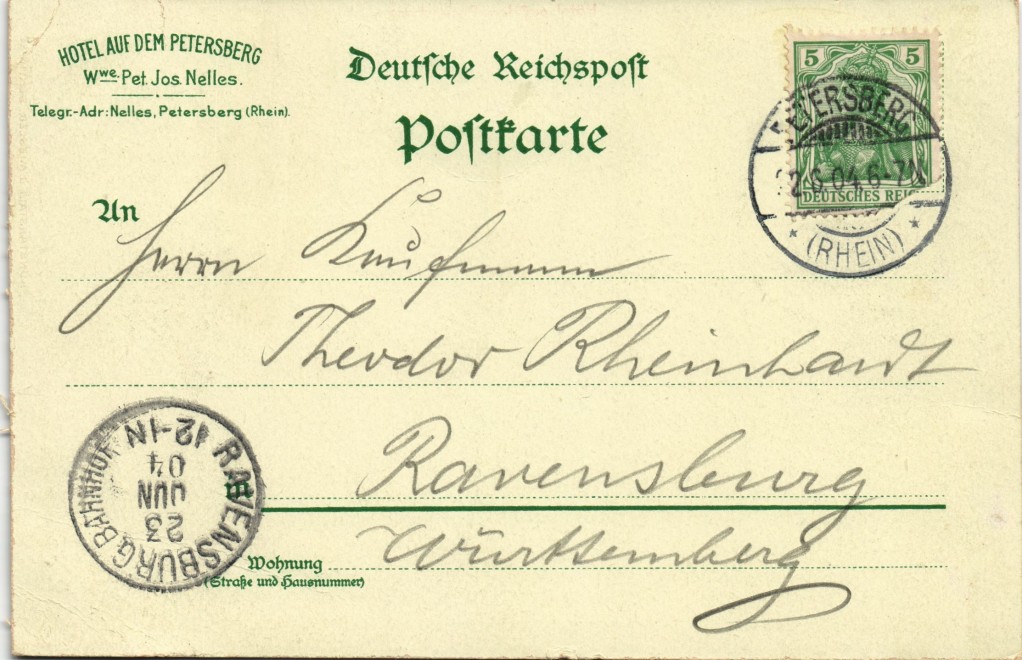 HOTEL AUF DEM PETERSBERG
Wwe. Pet. Jos. Nelles.
Telegr.-Adr: Nelles, Petersberg (Rhein).
Deutsche Reichspost
Postkarte
5 5
DEUTSCHES REICH
PETERSBERG
22.6.04. 6-7N
* (RHEIN) *
An
Herrn Kaufmann
Theodor Rheinhardt
Ravensburg
Württemberg
Wohnung
(Straße und Hausnummer)
RAVENSBURG BAHNHOF
23
JUN
04
12-1N